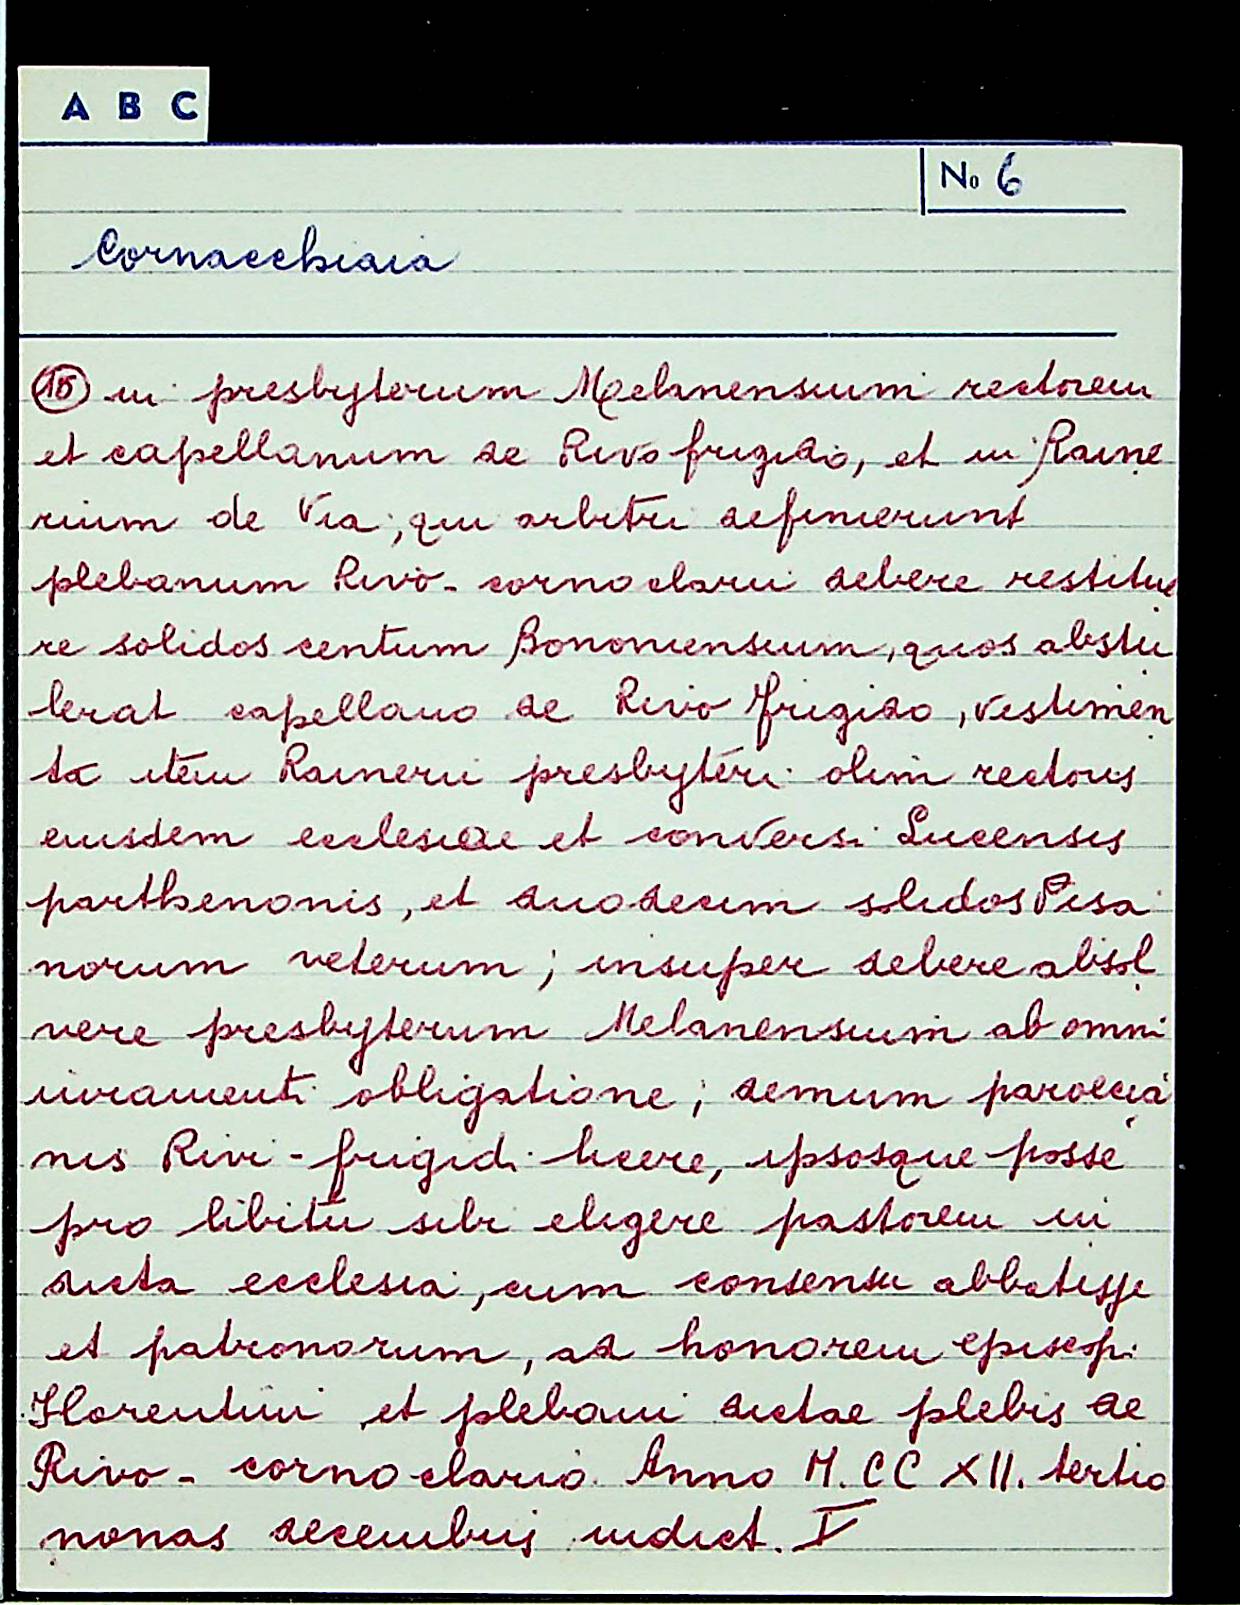 A B C
No 6
Cornacchiaia
15 in presbyterum Melanensium rectorem
et capellanum de Rivo frigido, et in Raine
rium de Via, qui arbitri definierunt
plebanum Rivo-cornoclarii debere restitue
re solidos centum Bononiensium, quos abstu
lerat capellano de Rivo Frigido, vestimen
ta item Rainerii presbyteri olim rectoris
eiusdem ecclesiae et conversi Lucensis
parthenonis, et duodecim solidos Pisa
norum veterum; insuper debere absol
vere presbyterum Melanensium ab omni
iuramenti obligatione; demum paroecia
nis Rivi-frigidi licere, ipsosque posse
pro libitu sibi eligere pastorem in
dicta ecclesia, cum consensu abbatisse
et patronorum, ad honorem episcopi
Florentini et plebani dictae plebis de
Rivo-cornoclario. Anno M.CCXII. tertio
nonas decembris indict. I